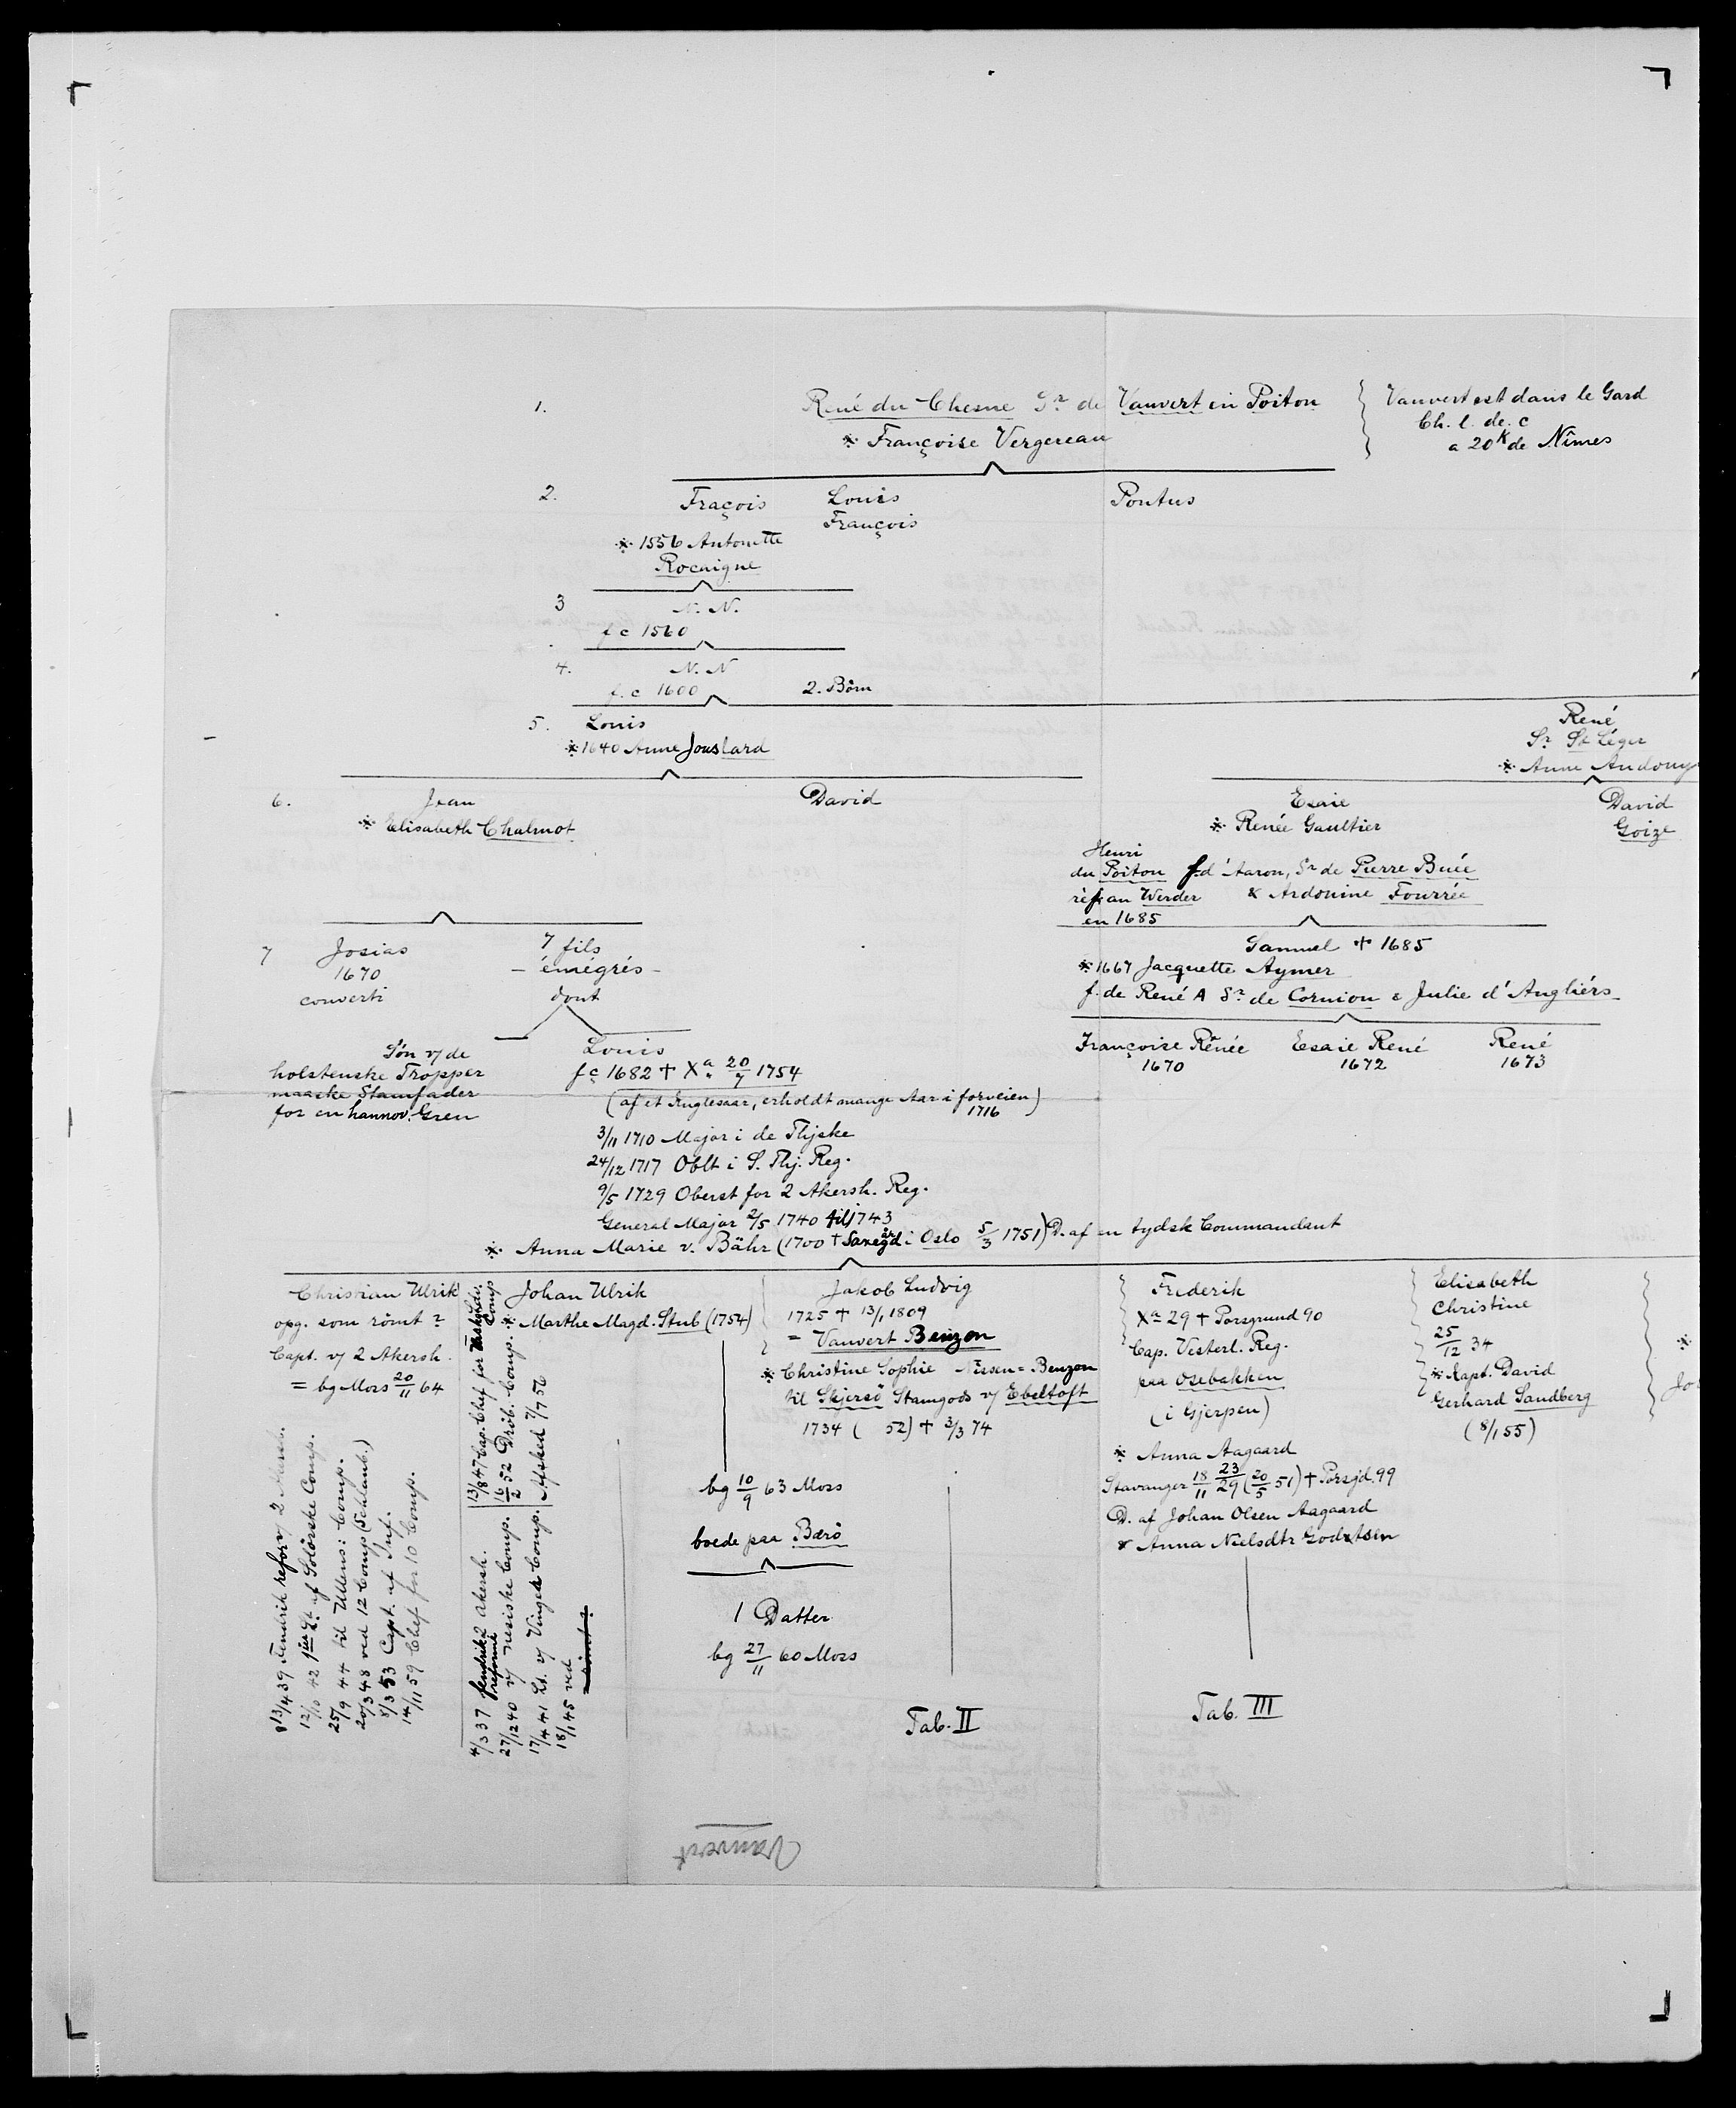 1. René du Chesne Sr de Vauvert en Poitou
※ Françoise Vergereau
Vauvert est dans le Gard
Ch. l. de. c
a 20K de Nîmes
2. Fraçois
※ 1556 Antonette
Rocaigne
Louis
François
Pontus
3 N. N.
f c 1560
4. N. N
f. c 1600
2. Börn
5. Louis
※ 1640 Anne Jouslard
René
Sr St Léger
※ Anne
6. Jean
※ Elisabeth Chalmot
David
Esaie
※ Renée Gaultier
David
Goize
Henri
du Poitou
réf. an Werder
en 1685
f. d'Aaron, Sr de Pierre Buée
& Ardouine Fourrée
7 Josias
1670
converti
7 fils
– émégrés –
dont
Samuel † 1685
※ 1667 Jacquette Aymer
f. de René A Sr de Cornion & Julie d'Angliérs
Françoise Rénée
1670
Esaie René
1672
René
1673
Sön v/ de
holstenske Tropper
maaske Stamfader
for en hannov. Gren
Louis
f c 1682 † Xa 20/7 1754
(af et Kuglesaar, erholdt mange Aar i forveien)
1716
3/11 1710 Major i de Thjske
24/12 1717 Oblt i S. Thj. Reg.
9/5 1729 Oberst for 2 Akersh. Reg.
General Major 2/5 1740 til 1743
※ Anna Marie v. Bähr (1700 † Saxegård i Oslo 5/3 1751) D. af en tydsk Commandant
Christian Ulrik
opg. som römt ?
Capt. v/ 2 Akersh.
= bg Moss 20/11 64
13/4 39 Fendrik refor v/ 2 Akersh.
12/10 42 1ste Lt. af Solörske Comp.
25/9 44 til Ullens: Comp.
20/3 48 ved 12 Comp (Schlanb.)
8/3 53 Capt. af Inf.
14/11 59 Chef for 10 Comp.
Johan Ulrik
※ Marthe Magd. Stub (1754)
4/3 37 fendrik 2 Akersh.
reformé
27/12 40 v/ nesiske Comp.
17/4 41 Lt. v/ Vinger Comp.
18/1 45 ved
13/8 47 Cap. Chef for
Comp
16/2 52 Dröb. Comp.
Afsked 7/7 56
bg 10/9 63 Moss
boede paa Bærö
1 Datter
bg 27/11 60 Moss
Jakob Ludvig
1725 † 13/1 1809
= Vauvert Benzon
※ Christine Sophie Nissen = Benzon
til Skjersö Stamgods v/ Ebeltoft
1734 ( 52) † 3/3 74
Tab. II
Frederik
Xa 29 † Porsgrund 90
Cap. Vesterl. Reg.
paa Osebakken
(i Gjerpen)
※ Anna Aagaard
Stavanger 18/11 23/29 (20/5 51) † Porsgd. 99
D. af Johan Olsen Aagaard
& Anna Nielsdtr Godtzen
Tab. III
Elisabeth
Christine
25/12 34
※ Kapt. David
Gerhard Sandberg
(8/1 55)
※
Jo
Vauvert